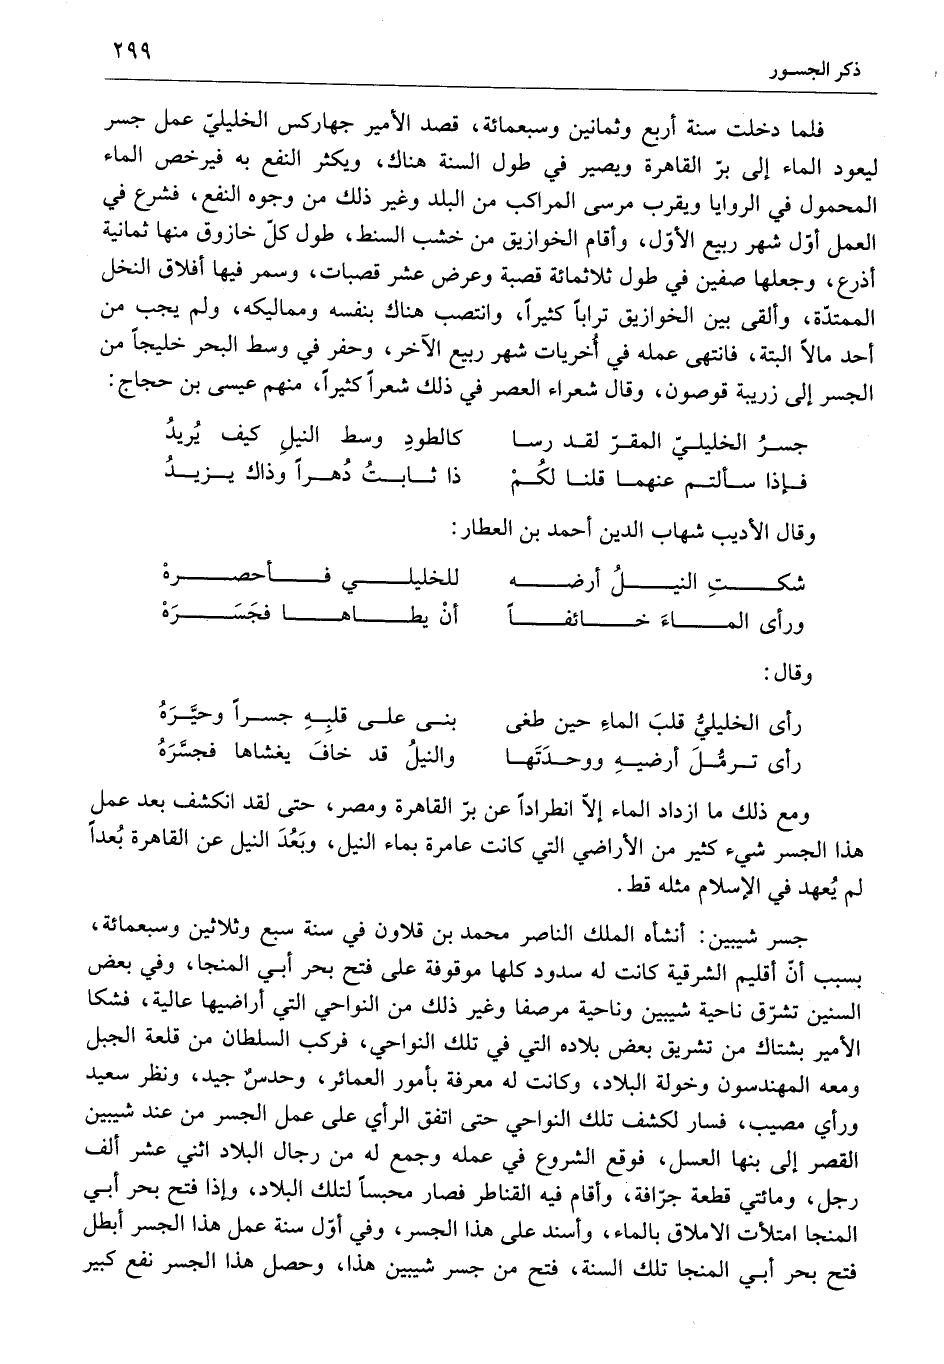 ٢٩٩
ذكر الجسور
فلما دخلت سنة أربع وثمانين وسبعمائة، قصد الأمير جهاركس الخليليّ عمل جسر
ليعود الماء إلى برّ القاهرة ويصير في طول السنة هناك، ويكثر النفع به فيرخص الماء
المحمول في الروايا ويقرب مرسى المراكب من البلد وغير ذلك من وجوه النفع، فشرع في
العمل أوّل شهر ربيع الأوّل، وأقام الخوازيق من خشب السنط، طول كلّ خازوق منها ثمانية
أذرع، وجعلها صفين في طول ثلاثمائة قصبة وعرض عشر قصبات، وسمر فيها أفلاق النخل
الممتدّة، وألقى بين الخوازيق تراباً كثيراً، وانتصب هناك بنفسه ومماليكه، ولم يجب من
أحد مالاً البتة، فانتهى عمله في أُخريات شهر ربيع الآخر، وحفر في وسط البحر خليجاً من
الجسر إلى زريبة قوصون، وقال شعراء العصر في ذلك شعراً كثيراً، منهم عيسى بن حجاج:
جسرُ الخليليّ المقرّ لقد رسا كالطودِ وسط النيلِ كيف يُريدُ
فإذا سألتم عنهما قلنا لكُمْ ذا ثابتُ دُهراً وذاك يزيدُ
وقال الأديب شهاب الدين أحمد بن العطار:
شكتِ النيلُ أرضه للخليلي فأحصرهْ
ورأى الماءَ خائفاً أنْ يطاها فجَسَرَهْ
وقال:
رأى الخليليُّ قلبَ الماءِ حين طغى بنى على قلبِهِ جسراً وحيَّرَهُ
رأى ترمُّلَ أرضيهِ ووحدَتَها والنيلُ قد خافَ يغشاها فجسَّرَهُ
ومع ذلك ما ازداد الماء إلاّ انطراداً عن برّ القاهرة ومصر، حتى لقد انكشف بعد عمل
هذا الجسر شيء كثير من الأراضي التي كانت عامرة بماء النيل، وبَعُدَ النيل عن القاهرة بُعداً
لم يُعهد في الإسلام مثله قط.
جسر شيبين: أنشأه الملك الناصر محمد بن قلاون في سنة سبع وثلاثين وسبعمائة،
بسبب أنّ أقليم الشرقية كانت له سدود كلها موقوفة على فتح بحر أبي المنجا، وفي بعض
السنين تشرّق ناحية شيبين وناحية مرصفا وغير ذلك من النواحي التي أراضيها عالية، فشكا
الأمير بشتاك من تشريق بعض بلاده التي في تلك النواحي، فركب السلطان من قلعة الجبل
ومعه المهندسون وخولة البلاد، وكانت له معرفة بأمور العمائر، وحدسٌ جيد، ونظر سعيد
ورأي مصيب، فسار لكشف تلك النواحي حتى اتفق الرأي على عمل الجسر من عند شيبين
القصر إلى بنها العسل، فوقع الشروع في عمله وجمع له من رجال البلاد اثني عشر ألف
رجل، ومائتي قطعة جرّافة، وأقام فيه القناطر فصار محبساً لتلك البلاد، وإذا فتح بحر أبي
المنجا امتلأت الاملاق بالماء، وأسند على هذا الجسر، وفي أوّل سنة عمل هذا الجسر أبطل
فتح بحر أبي المنجا تلك السنة، فتح من جسر شيبين هذا، وحصل هذا الجسر نفع كبير